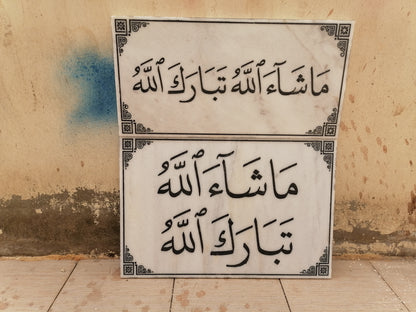 مَاشَآءَ ٱللَّهُ تَبَارَكَ ٱللَّهُ
مَاشَآءَ ٱللَّهُ
تَبَارَكَ ٱللَّهُ